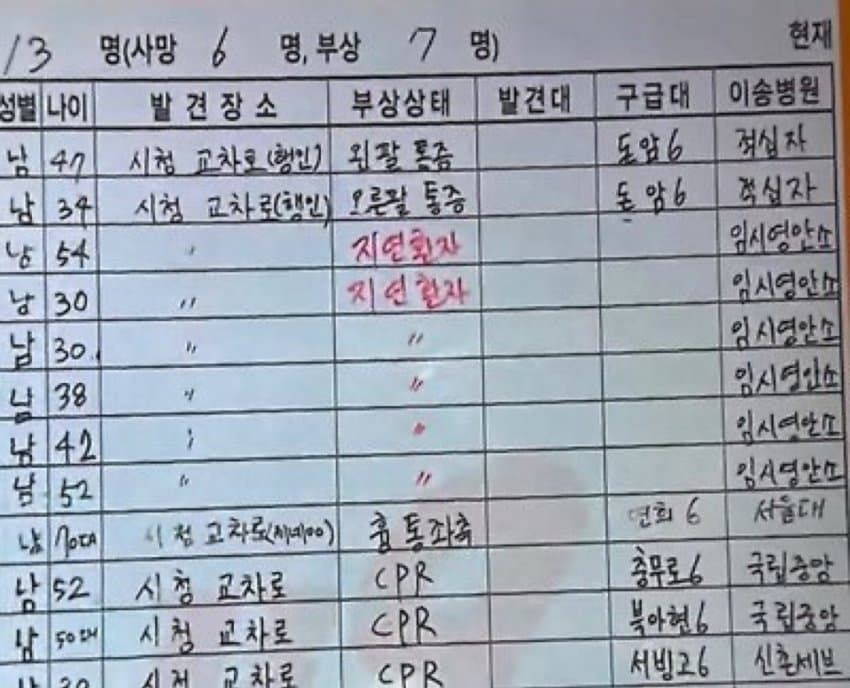 13 명(사망 6 명, 부상 7 명) 현재
성별 나이 발견장소 부상상태 발견대 구급대 이송병원
남 47 시청 교차로(행인) 왼팔 통증 돈암6 적십자
남 34 시청 교차로(행인) 오른팔 통증 돈암6 적십자
남 54 〃 지연환자 임시영안소
남 30 〃 지연환자 임시영안소
남 30 〃 〃 임시영안소
남 38 〃 〃 임시영안소
남 42 〃 〃 임시영안소
남 52 〃 〃 임시영안소
남 70대 시청 교차로 흉통좌측 연희6 서울대
남 52 시청 교차로 CPR 충무로6 국립중앙
남 50대 시청 교차로 CPR 북아현6 국립중앙
남 30 시청 교차로 CPR 서빙고6 신촌세브